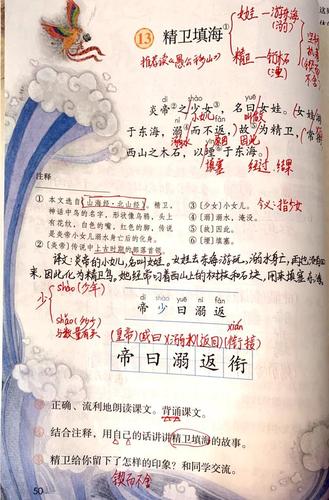 13 精卫填海①
女娃—游东海
(溺)
精卫—
坚持
锲而
不舍
推荐读《愚公移山》
炎帝②之少③女，名曰女娃。
小女儿 叫做
于东海，溺④而不返，故⑤为精卫，常
溺水 返回 因此
西山之木石，以堙⑥于东海。
填塞 经过 结果
注释
①本文选自《山海经·北山经》。精卫，
神话中鸟的名字，形状像乌鸦，头上
有花纹，白色的嘴，红色的脚，传说
是炎帝小女儿溺水身亡后的化身。
②〔炎帝〕传说中上古时期的部落首领。
③〔少女〕小女儿。
今义：指少女
④〔溺〕溺水，淹没。
⑤〔故〕因此。
⑥〔堙〕填塞。
译文：炎帝的小女儿，名叫女娃。女娃去东海游玩，溺水身亡，再也没有回
来，因此化为精卫鸟。她经常叼着西山上的树枝和石块，用来填塞东海。
少
shào (少年)
shǎo (多少)
与数量有关
dì shào yuē nì fǎn
帝 少 曰 溺 返
xián
(皇帝) (或曰) (溺水) (返回) (衔接)
帝 曰 溺 返 衔
正确、流利地朗读课文。背诵课文。
结合注释，用自己的话讲讲精卫填海的故事。
精卫给你留下了怎样的印象？和同学交流。
锲而不舍
50